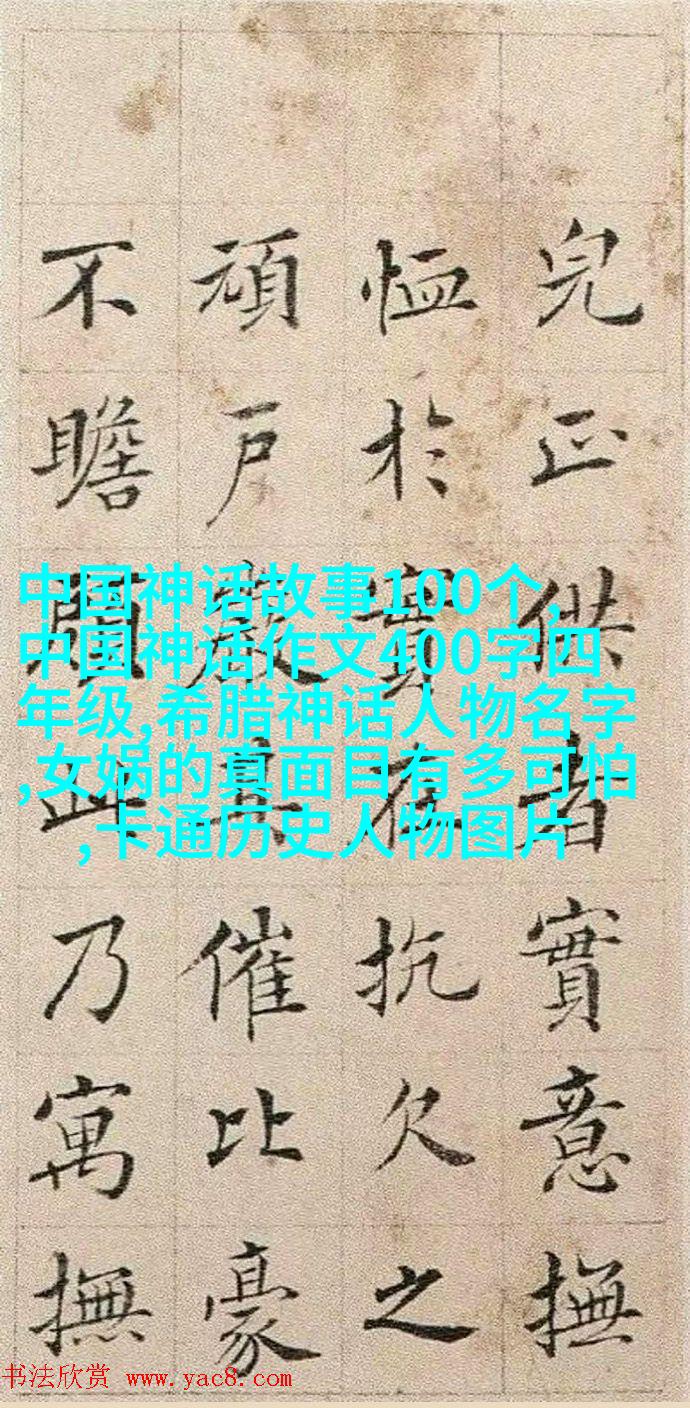 完正供者實意撫
恤於實在抗欠之
頑戶嚴其催比豪
不瞻顧此乃寓撫
中国神话故事100个,
中国神话作文400字四
年级,希腊神话人物名字
,女娲的真面目有多可怕
,卡通历史人物图片
书法欣赏 www.yac8.com